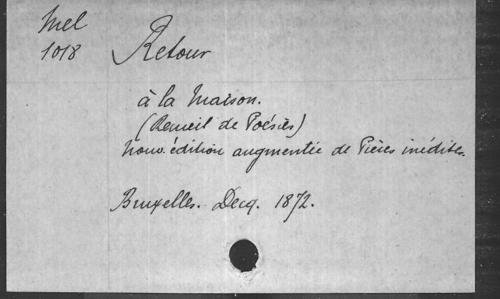 Mel
1018
Retour
à la Maison.
(Recueil de Poésies)
Nouv. édition augmentée de Pièces inédites.
Bruxelles. Decq. 1872.